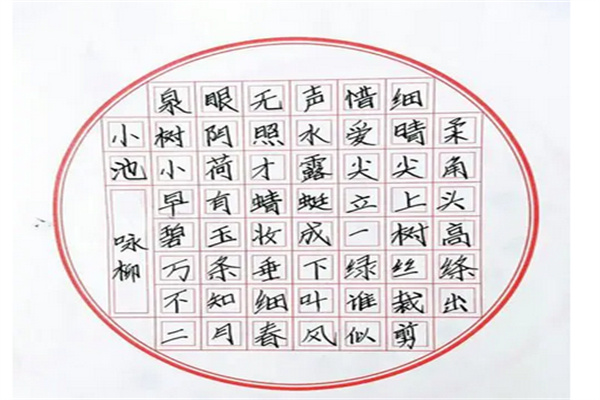 小池
泉眼无声惜细
树阴照水爱晴柔
小荷才露尖尖角
早有蜻蜓立上头
咏柳
碧玉妆成一树高
万条垂下绿丝绦
不知细叶谁裁出
二月春风似剪